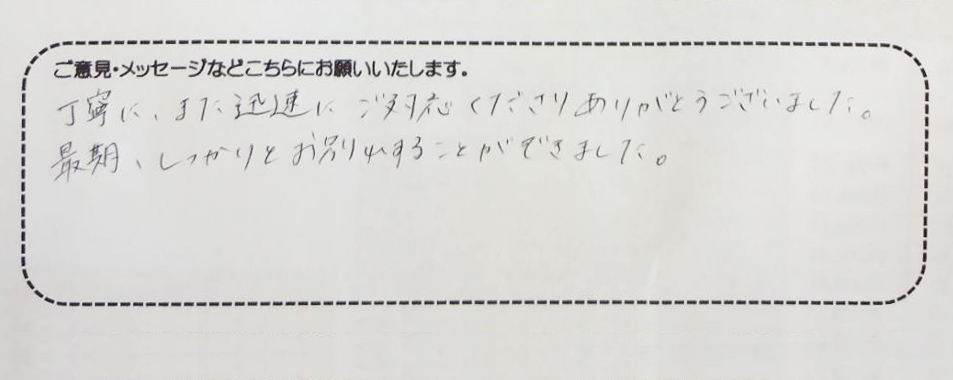 ご意見・メッセージなどこちらにお願いいたします。
丁寧に、また迅速にご対応くださりありがとうございました。
最期、しっかりとお別れすることができました。